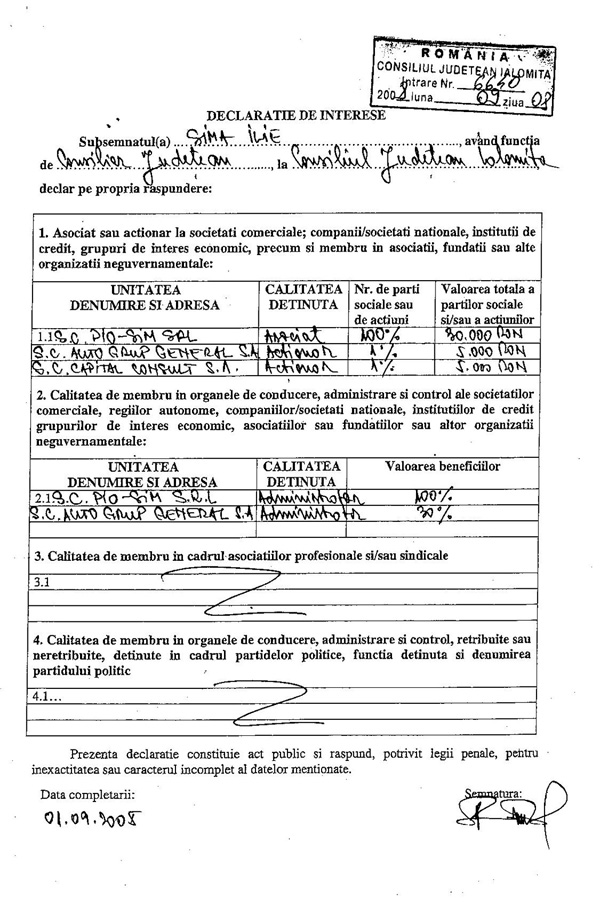 ROMÂNIA
CONSILIUL JUDEȚEAN IALOMIȚA
Intrare Nr. 6640
2008 luna 09 ziua 08
DECLARATIE DE INTERESE
Subsemnatul(a) SIMA ILIE, având funcția
de Consilier Judetean, la Consiliul Judetean Ialomita
declar pe propria raspundere:
1. Asociat sau actionar la societati comerciale; companii/societati nationale, institutii de
credit, grupuri de interes economic, precum si membru in asociatii, fundatii sau alte
organizatii neguvernamentale:
UNITATEA DENUMIRE SI ADRESA CALITATEA DETINUTA Nr. de parti sociale sau de actiuni Valoarea totala a partilor sociale si/sau a actiunilor
1.1 S.C. PIO-SIM SRL Asociat 100% 30.000 RON
S.C. AUTO GRUP GENERAL S.A Actionar 1% 5.000 RON
S.C. CAPITAL CONSULT S.A. Actionar 1% 5.000 RON
2. Calitatea de membru in organele de conducere, administrare si control ale societatilor
comerciale, regiilor autonome, companiilor/societati nationale, institutiilor de credit
grupurilor de interes economic, asociatiilor sau fundatiilor sau altor organizatii
neguvernamentale:
UNITATEA DENUMIRE SI ADRESA CALITATEA DETINUTA Valoarea beneficiilor
2.1 S.C. PIO-SIM S.R.L Administrator 100%
S.C. AUTO GRUP GENERAL S.A Administrator 30%
3. Calitatea de membru in cadrul asociatiilor profesionale si/sau sindicale
3.1
4. Calitatea de membru in organele de conducere, administrare si control, retribuite sau
neretribuite, detinute in cadrul partidelor politice, functia detinuta si denumirea
partidului politic
4.1...
Prezenta declaratie constituie act public si raspund, potrivit legii penale, pentru
inexactitatea sau caracterul incomplet al datelor mentionate.
Data completarii: Semnatura:
01.09.2008